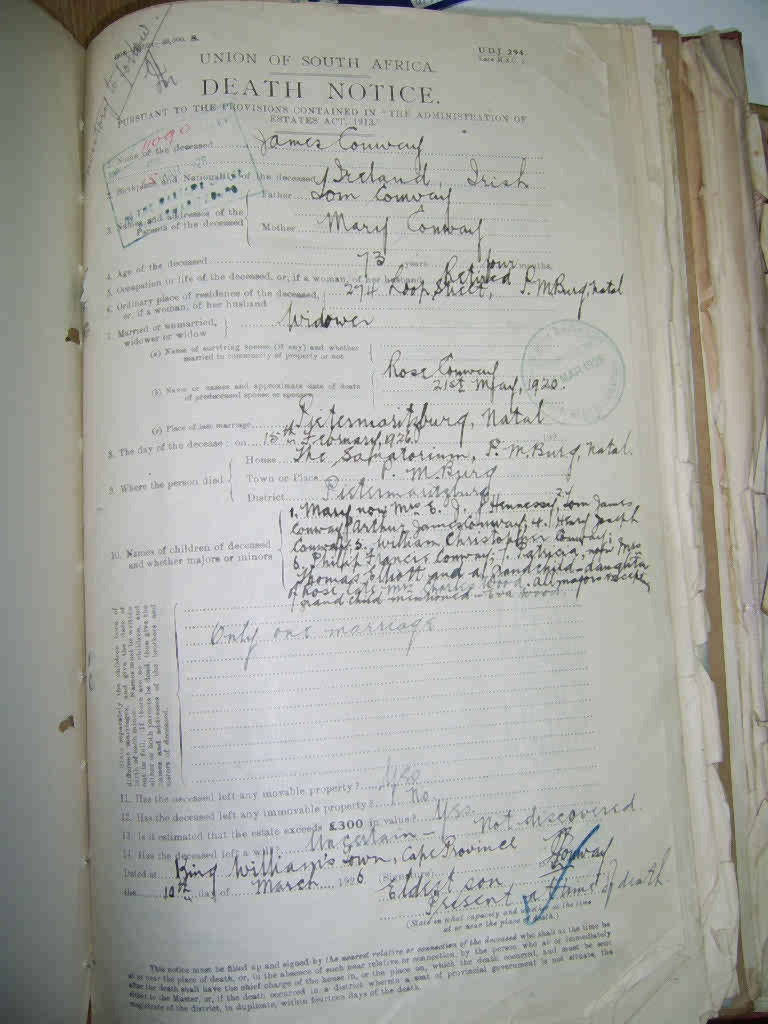 U.D.J. 294.
UNION OF SOUTH AFRICA.
DEATH NOTICE.
PURSUANT TO THE PROVISIONS CONTAINED IN "THE ADMINISTRATION OF
ESTATES ACT, 1913."
11090
1. Name of the deceased James Conway
2. Birthplace and Nationality of the deceased Ireland, Irish
3. Names and addresses of the Parents of the deceased
Father Tom Conway
Mother Mary Conway
4. Age of the deceased 73 years four months.
5. Occupation in life of the deceased, or, if a woman, of her husband Retired
6. Ordinary place of residence of the deceased, or, if a woman, of her husband 274 Loop Street, P.M.Burg, Natal
7. Married or unmarried, widower or widow Widower
(a) Name of surviving spouse (if any) and whether married in community of property or not
(b) Name or names and approximate date of death of predeceased spouse or spouses Rose Conway
21st May, 1920.
(c) Place of last marriage Pietermaritzburg, Natal
8. The day of the decease: on 15th February, 1926
9. Where the person died
House The Sanatorium, P.M.Burg, Natal.
Town or Place P.M.Burg
District Pietermaritzburg
10. Names of children of deceased and whether majors or minors
1. Mary now Mrs E. J. Hennessy, 2. Tom James
Conway Arthur James Conway; 4. Henry Joseph
Conway; 5. William Christopher Conway;
6. Philip Francis Conway; 7. Patricia, now Mrs
Thomas Elliott and a grandchild - daughter
of Rose, late Mrs Charles Wood. All majors except
grandchild mentioned - Eva Wood.
Only one marriage
State separately the children born of
different marriages, and give the date of
birth of each minor. Names must be written
out in full. If there are no children, and
either or both parents be dead, then give the
names and addresses of the brothers and
sisters of deceased.
11. Has the deceased left any movable property? Yes
12. Has the deceased left any immovable property? No
13. Is it estimated that the estate exceeds £300 in value? Yes
14. Has the deceased left a will? Uncertain - Not discovered.
Dated at King William's Town, Cape Province
the 10th day of March 1926 (Signature) Conway
Eldest son
Present at time of death.
(State in what capacity and whether at the time
at or near the place of death.)
This notice must be filled up and signed by the nearest relative or connection of the deceased who shall at the time be
at or near the place of death, or, in the absence of such near relative or connection, by the person who at or immediately
after the death shall have the chief charge of the house in, or the place on, which the death occurred, and must be sent
either to the Master, or, if the death occurred in a district wherein a seat of provincial government is not situate, the
magistrate of the district, in duplicate, within fourteen days of the death.